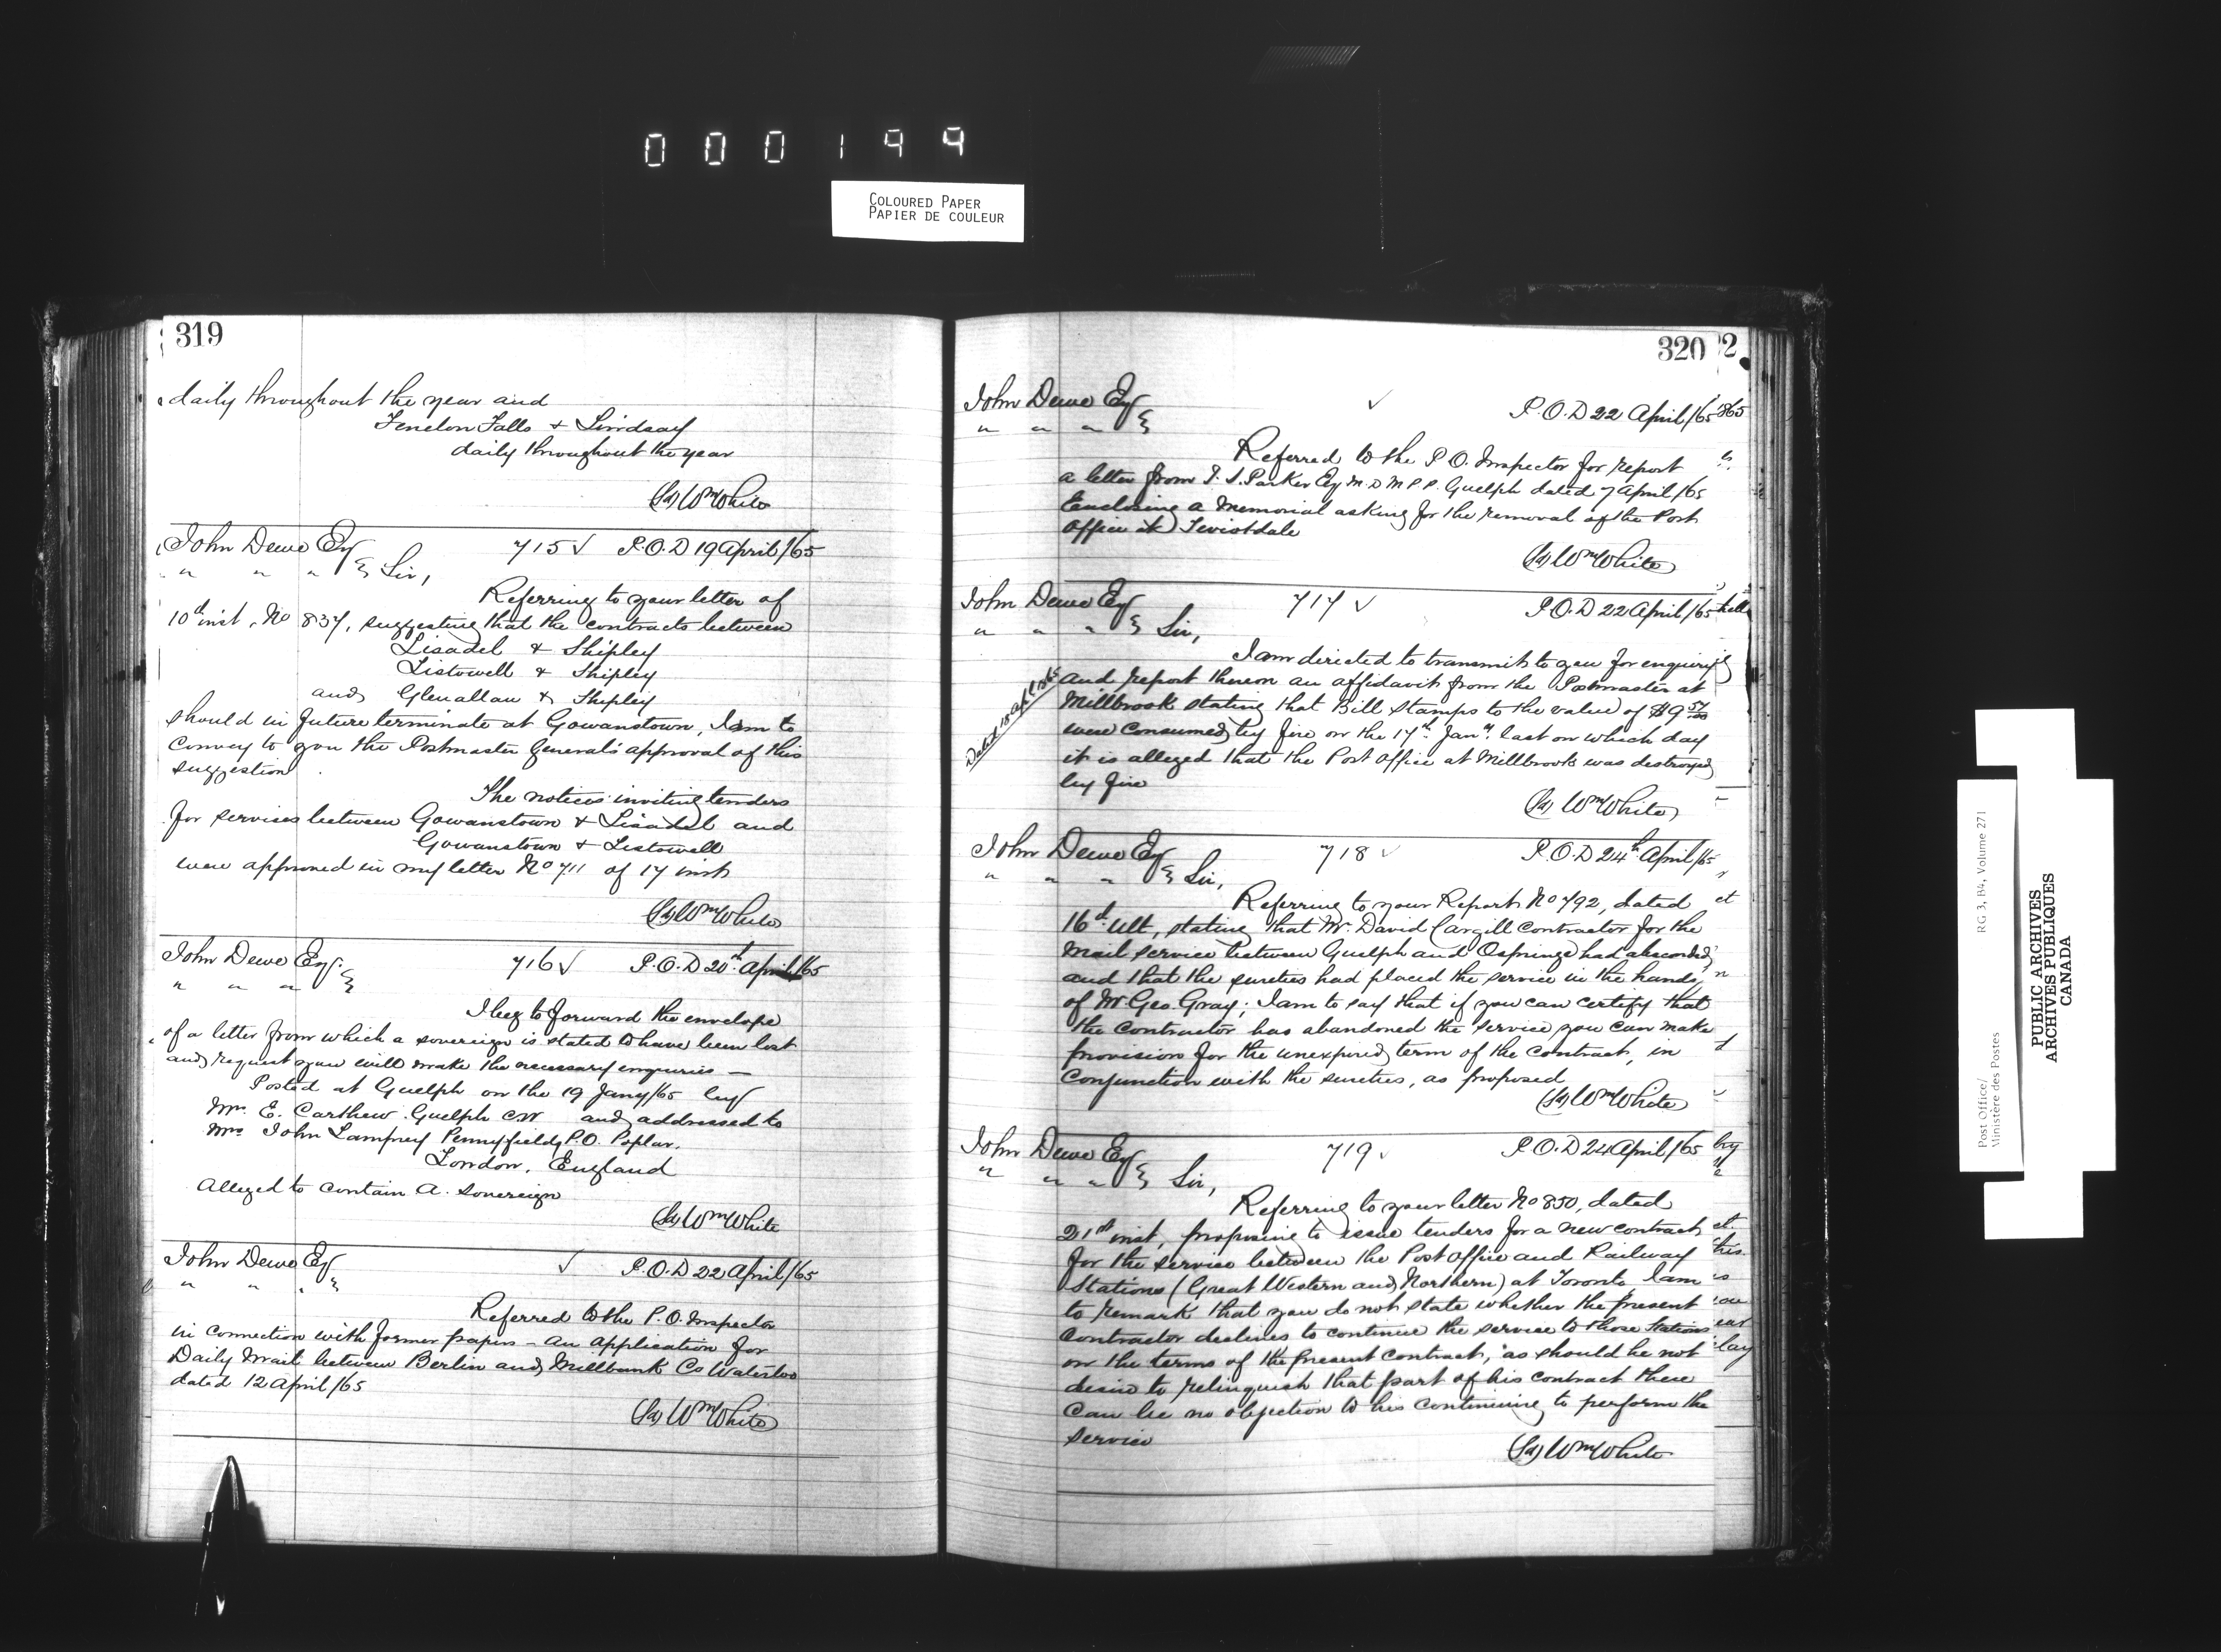 000199
COLOURED PAPER
PAPIER DE COULEUR
319
daily throughout the year and
Fenelon Falls & Lindsay
daily throughout the year
(Sd) Wm White
John Dewe Esq 715 ✓ P.O.D 19 April/65
" " " Sir,
Referring to your letter of
10th inst, No 837, suggesting that the contracts between
Lisadel & Shipley
Listowell & Shipley
and Glenallan & Shipley
should in future terminate at Gowanstown, I am to
convey to you the Postmaster General's approval of this
suggestion
The notices inviting tenders
for services between Gowanstown & Lisadel and
Gowanstown & Listowell
were approved in my letter No 711 of 17 inst
(Sd) Wm White
John Dewe Esq. 716 ✓ P.O.D 20th April/65
" " "
I beg to forward the envelope
of a letter from which a sovereign is stated to have been lost
and request you will make the necessary enquiries —
Posted at Guelph on the 19 Jany/65 by
Mr. E. Carthew Guelph CW and addressed to
Mrs John Lamprey Pennyfields P.O. Poplar.
London, England
Alleged to contain A. sovereign
(Sd) Wm White
John Dewe Esq ✓ P.O.D 22 April/65
" " "
Referred to the P.O. Inspector
in connection with former papers – an application for
Daily Mail between Berlin and Millbank Co Waterloo
dated 12 April/65
(Sd) Wm White
320
John Dewe Esq ✓ P.O.D 22 April/65
" " "
Referred to the P.O. Inspector for report
a letter from T. S. Parker Esq M.D M P P. Guelph dated 7 April/65
Enclosing a Memorial asking for the removal of the Post
Office at Teviotdale
(Sd) Wm White
John Dewe Esq 717 ✓ P.O.D 22 April/65
" " " Sir,
I am directed to transmit to you for enquiry
and report thereon an affidavit from the Postmaster at
Millbrook stating that Bill Stamps to the value of $9 57/100
were consumed by fire on the 17th Jany. last on which day
it is alleged that the Post Office at Millbrook was destroyed
by fire
(Sd) Wm White
John Dewe Esq 718 ✓ P.O.D 24th April/65
" " " Sir,
Referring to your Report No 792, dated
16th ult, stating that Mr. David Cargill contractor for the
Mail service between Guelph and Ospringe had absconded
and that the sureties had placed the service in the hands
of Mr. Geo. Gray; I am to say that if you can certify that
the contractor has abandoned the service you can make
provision for the unexpired term of the contract, in
conjunction with the sureties, as proposed
(Sd) Wm White
John Dewe Esq 719 ✓ P.O.D 24 April/65
" " " Sir,
Referring to your letter No 850, dated
21st inst, proposing to issue tenders for a new contract
for the service between the Post Office and Railway
Stations (Great Western and Northern) at Toronto I am
to remark that you do not state whether the present
contractor declines to continue the service to those Stations
on the terms of the present contract, as should he not
desire to relinquish that part of his contract there
can be no objection to his continuing to perform the
service
(Sd) Wm White
Post Office/ RG 3, B4, Volume 271
Ministère des Postes
PUBLIC ARCHIVES
ARCHIVES PUBLIQUES
CANADA